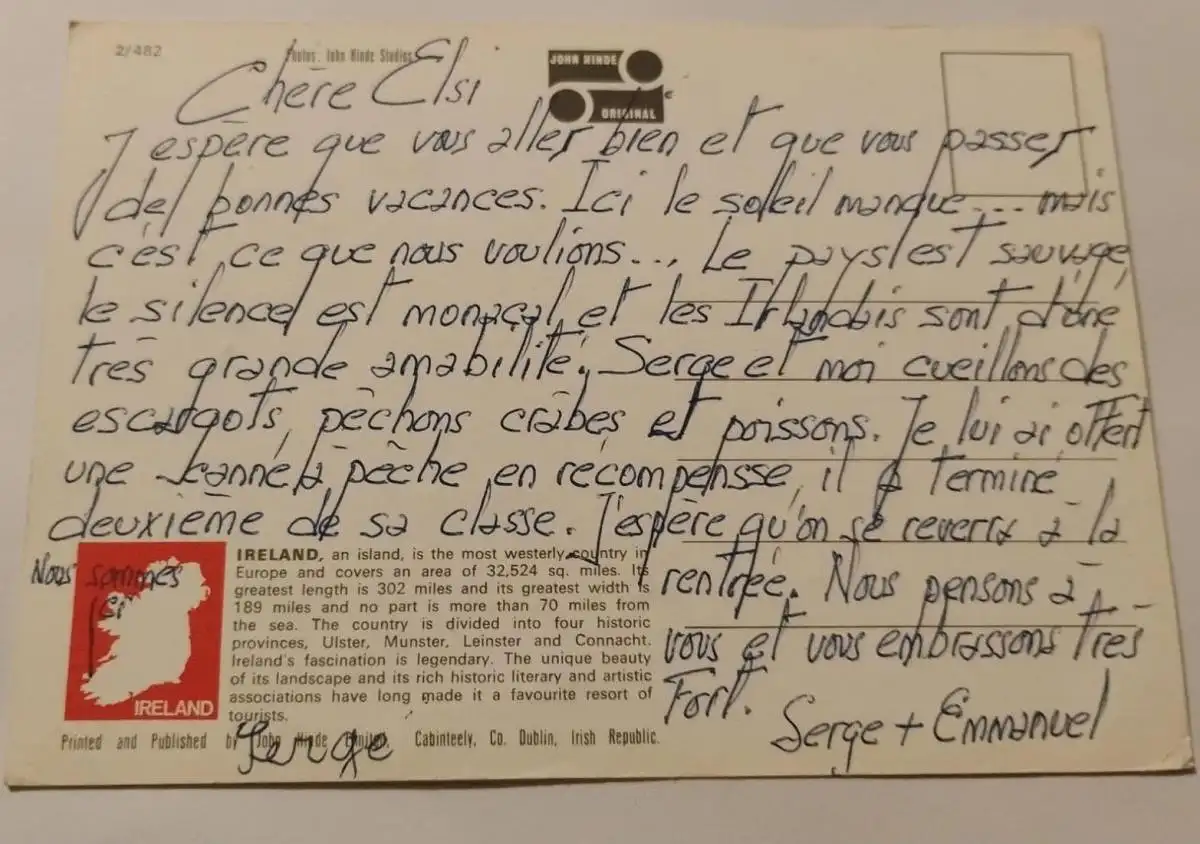 2/482
Photos. John Hinde Studios
JOHN HINDE
ORIGINAL
Chère Elsi
J'espère que vous aller bien et que vous passer
de bonnes vacances. Ici le soleil manque... mais
c'est ce que nous voulions... Le pays est sauvage,
le silence est monacal et les Irlandais sont d'une
très grande amabilité. Serge et moi cueillons des
escargots, pêchons crabes et poissons. Je lui ai offert
une canne à pêche en récompensse, il a terminé
deuxième de sa classe. J'espère qu'on se reverra à la
rentrée. Nous pensons à
vous et vous embrassons très
Fort.
Serge + Emmanuel
Nous sommes
ici
IRELAND
IRELAND, an island, is the most westerly country in
Europe and covers an area of 32,524 sq. miles. Its
greatest length is 302 miles and its greatest width is
189 miles and no part is more than 70 miles from
the sea. The country is divided into four historic
provinces, Ulster, Munster, Leinster and Connacht.
Ireland's fascination is legendary. The unique beauty
of its landscape and its rich historic literary and artistic
associations have long made it a favourite resort of
tourists.
Printed and Published by John Hinde Limited, Cabinteely, Co. Dublin, Irish Republic.
Serge